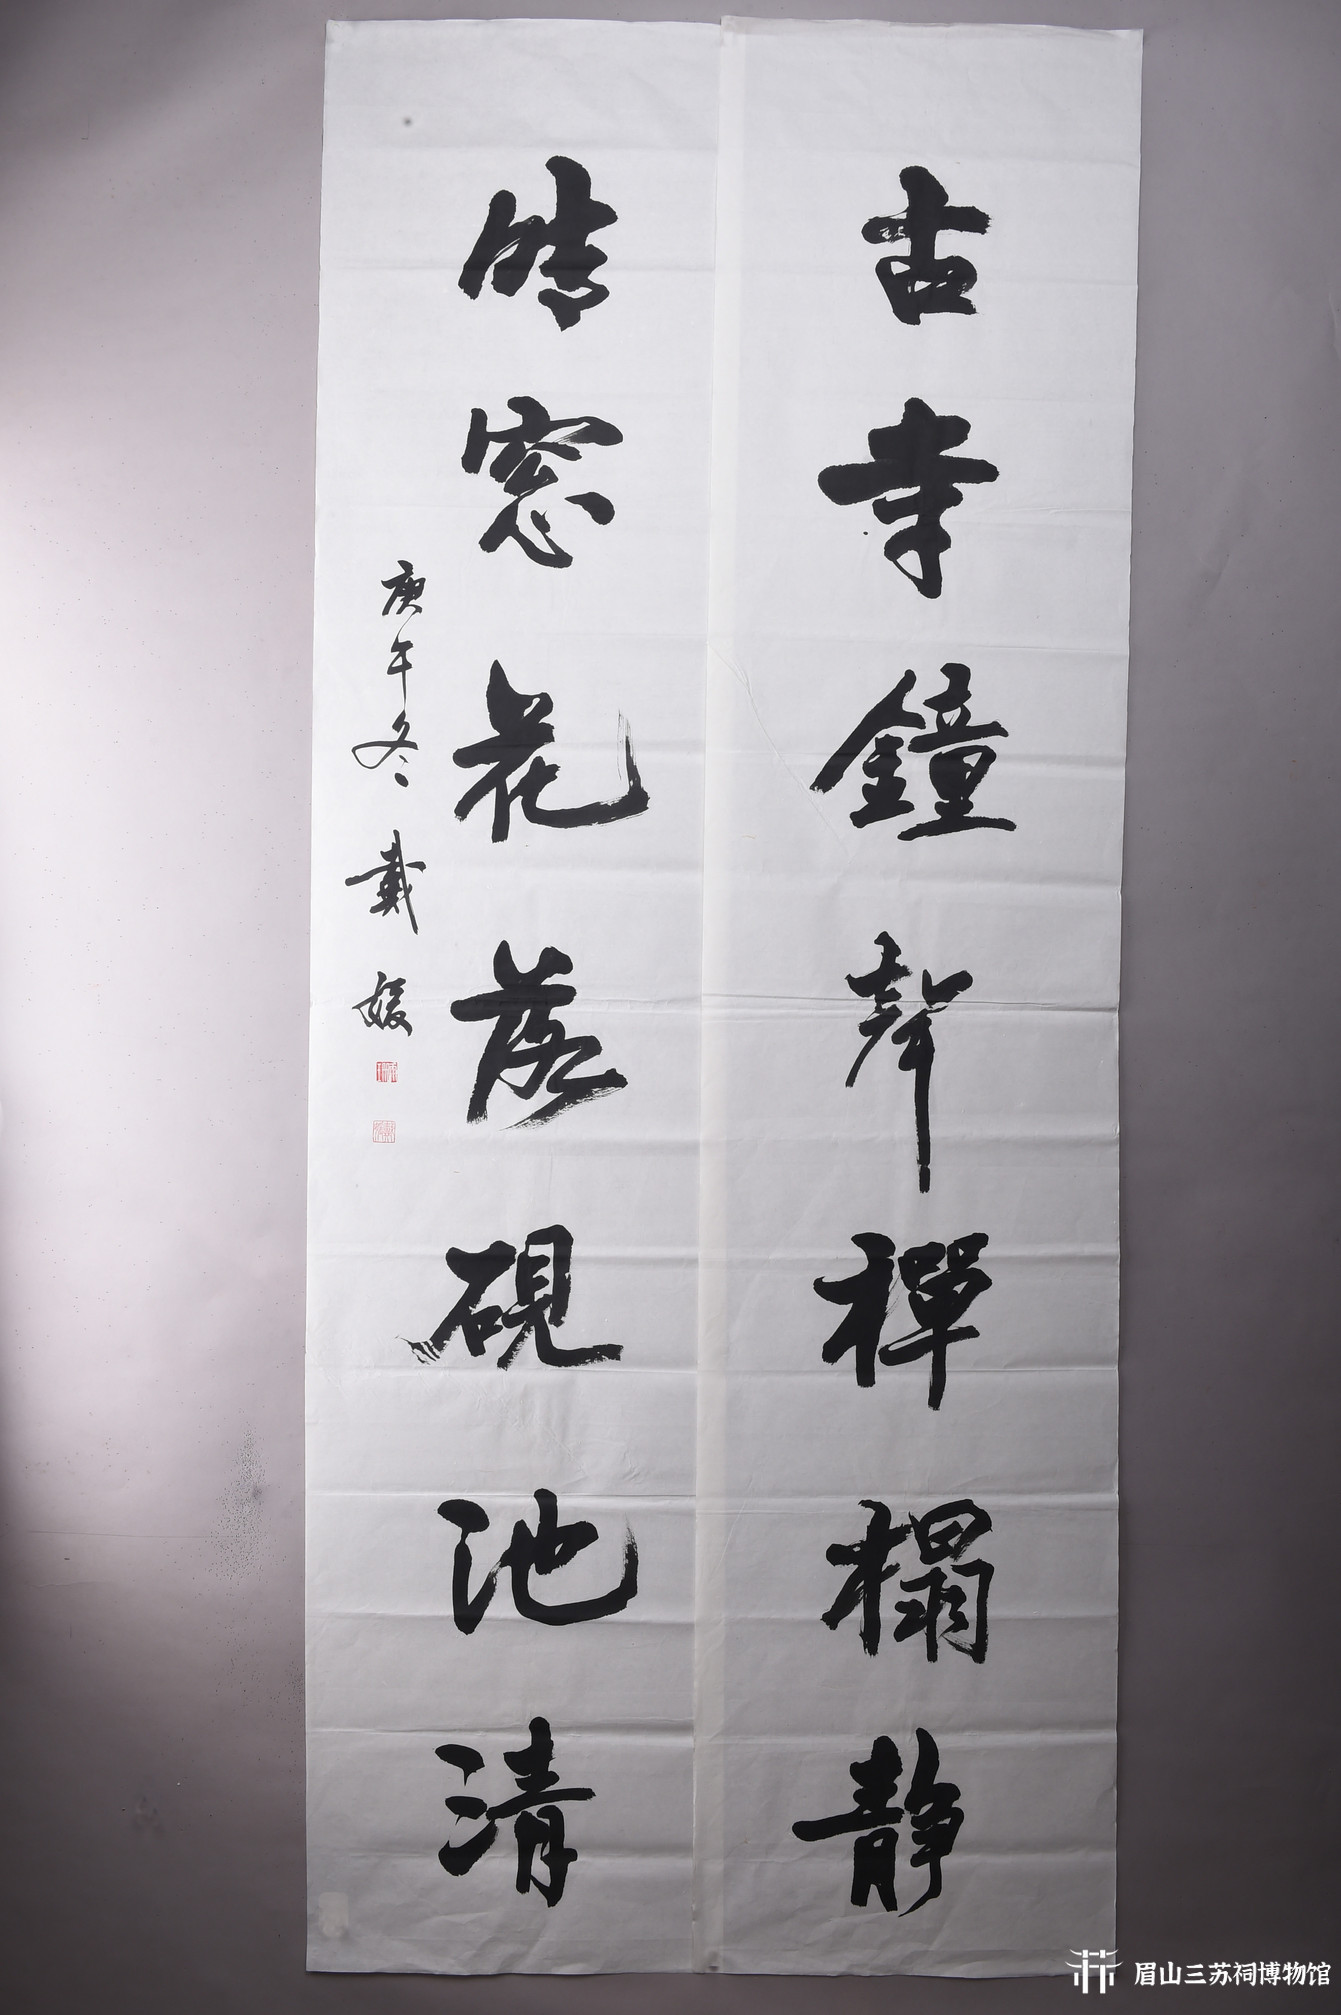 古寺鐘聲禪榻静
晴窓花落硯池清
庚午冬 戴媛
眉山三苏祠博物馆